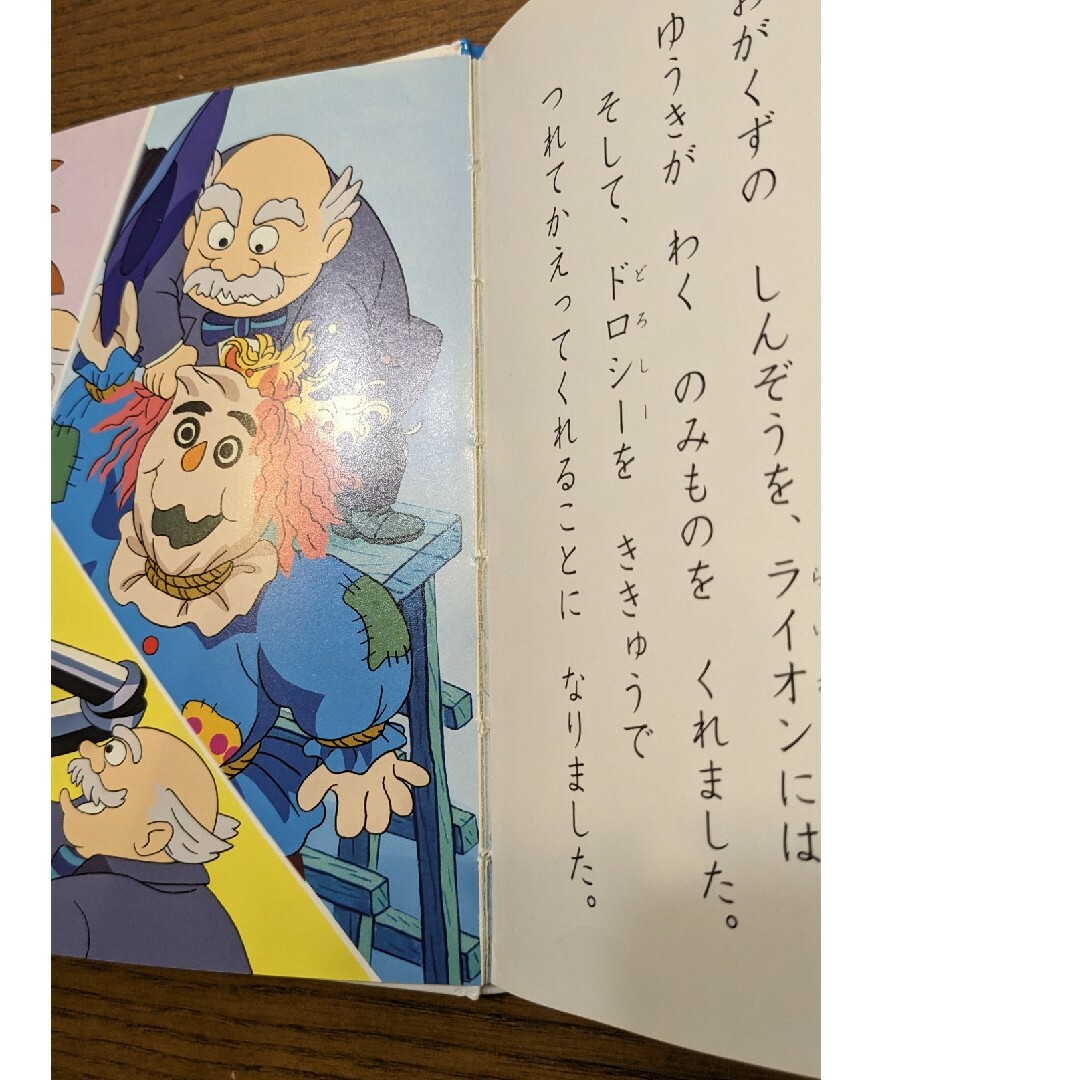 がくずの しんぞうを、ライオンには
ゆうきが わく のみものを くれました。
そして、ドロシーを ききゅうで
つれてかえってくれることに なりました。